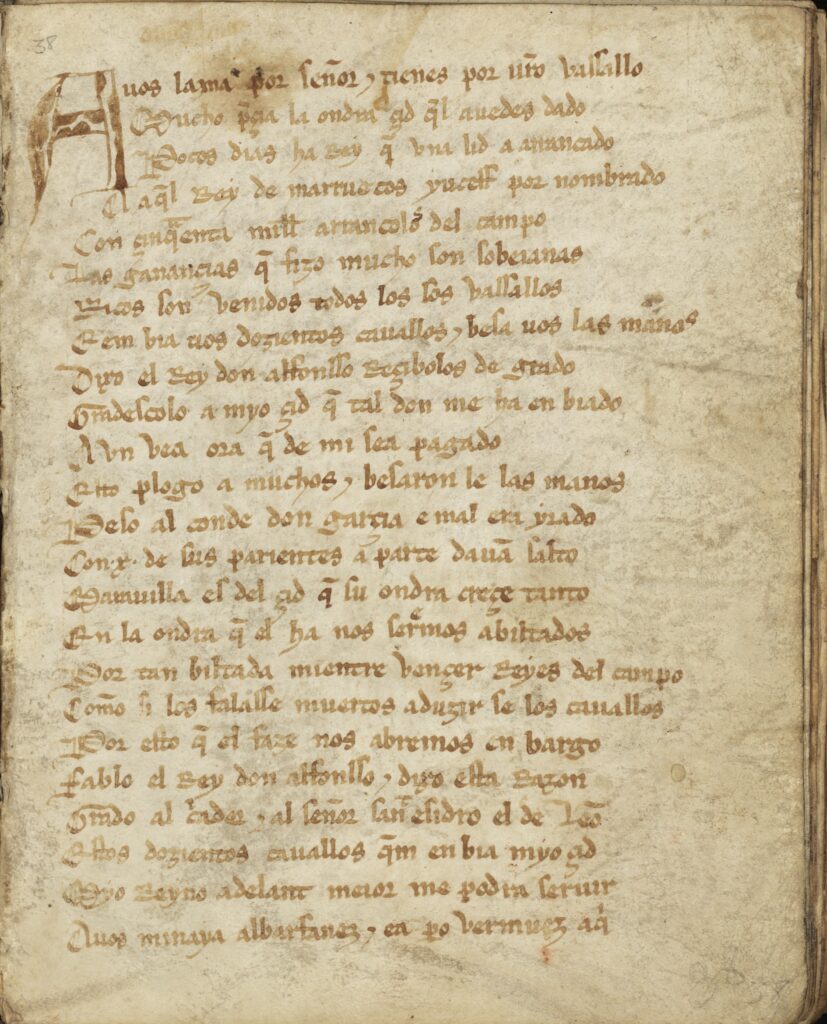 38
Auos lama por señor ⁊ tienes por uro vassallo
Mucho pçia la ondra çid q̃l auedes dado
Pocos dias ha Rey q̃ vna lid a arrancado
A aq̃l Rey de marruecos yuceff por nombrado
Con çinq̃enta mill arrancolos del campo
Las ganançias q̃ fizo mucho son sobeianas
Ricos son venidos todos los sos vassallos
E embia uos dozientos cauallos ⁊ besa uos las manos
Dixo el Rey don alfonsso Reçibolos de grado
Gradescolo a myo çid q̃ tal don me ha en biado
Avn vea ora q̃ de mi sea pagado
Esto plogo a muchos ⁊ besaron le las manos
Peso al conde don garçia e mal era yrado
Con .x. de sus parientes a parte dauã salto
Marauilla es del çid q̃ su ondra creçe tanto
En la ondra q̃ el ha nos seremos abiltados
Por tan biltada mientre vençer Reyes del campo
Commo si los falasse muertos aduzir se los cauallos
Por esto q̃ el faze nos abremos en bargo
Fablo el Rey don alfonsso ⁊ dixo esta Razon
Grado al c̃ador ⁊ al señor sañ esidro el de Leõ
Estos dozientos cauallos q̃m en bia myo çid
Myo Reyno adelant meior me podra seruir
Auos minaya albarfanez ⁊ ea po vermuez aq̃